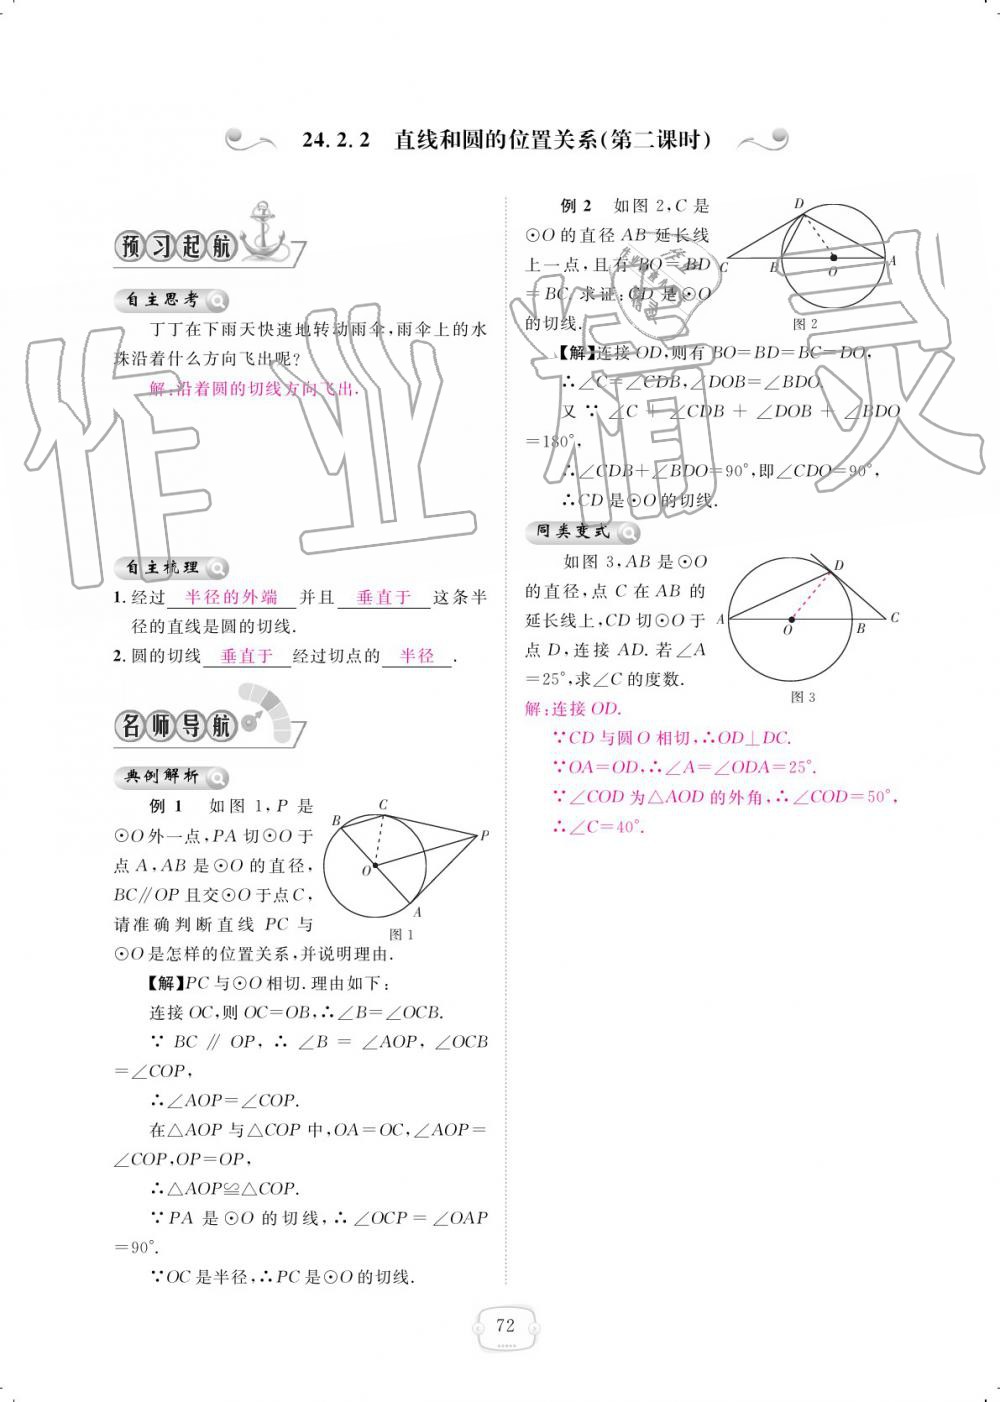 24.2.2 直线和圆的位置关系(第二课时)
预习起航
自主思考
丁丁在下雨天快速地转动雨伞,雨伞上的水
珠沿着什么方向飞出呢?
解:沿着圆的切线方向飞出.
自主梳理
1.经过 半径的外端 并且 垂直于 这条半
径的直线是圆的切线.
2.圆的切线 垂直于 经过切点的 半径 .
名师导航
典例解析
例 1 如图 1,P 是
⊙O外一点,PA 切⊙O于
点 A,AB 是⊙O 的直径,
BC∥OP 且交⊙O于点C,
请准确判断直线 PC 与
⊙O是怎样的位置关系,并说明理由.
B
C
P
O
A
图 1
【解】PC与⊙O相切.理由如下:
连接 OC,则 OC=OB,∴∠B=∠OCB.
∵ BC ∥ OP, ∴ ∠B = ∠AOP, ∠OCB
=∠COP,
∴∠AOP=∠COP.
在△AOP 与△COP 中,OA=OC,∠AOP=
∠COP,OP=OP,
∴△AOP≌△COP.
∵PA 是⊙O 的切线,∴∠OCP=∠OAP
=90°.
∵OC是半径,∴PC是⊙O的切线.
例 2 如图 2,C 是
⊙O的直径 AB 延长线
上一点,且有 BO=BD
=BC.求证:CD 是⊙O
的切线.
D
C
B
O
A
图 2
【解】连接OD,则有 BO=BD=BC=DO,
∴∠C=∠CDB,∠DOB=∠BDO.
又 ∵ ∠C + ∠CDB + ∠DOB + ∠BDO
=180°,
∴∠CDB+∠BDO=90°,即∠CDO=90°,
∴CD是⊙O的切线.
同类变式
如图 3,AB 是⊙O
的直径,点 C 在 AB 的
延长线上,CD切⊙O于
点 D,连接 AD.若∠A
=25°,求∠C的度数.
D
A
O
B
C
图 3
解:连接 OD.
∵CD与圆O相切,∴OD⊥DC.
∵OA=OD,∴∠A=∠ODA=25°.
∵∠COD为△AOD的外角,∴∠COD=50°,
∴∠C=40°.
作业精灵
72